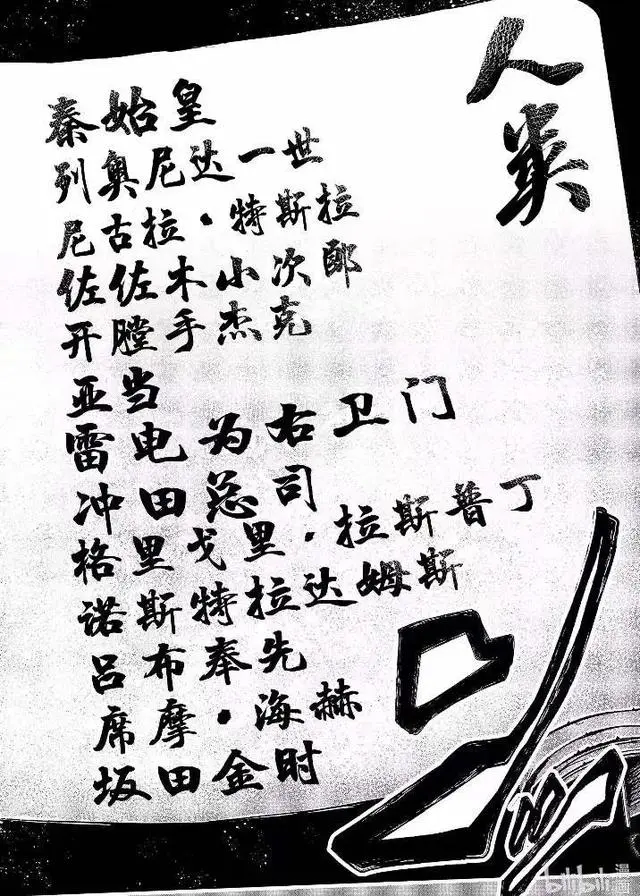 人类
秦始皇
列奥尼达一世
尼古拉·特斯拉
佐佐木小次郎
开膛手杰克
亚当
雷电为右卫门
冲田总司
格里戈里·拉斯普丁
诺斯特拉达姆斯
吕布奉先
席摩·海赫
坂田金时
bilibili漫画